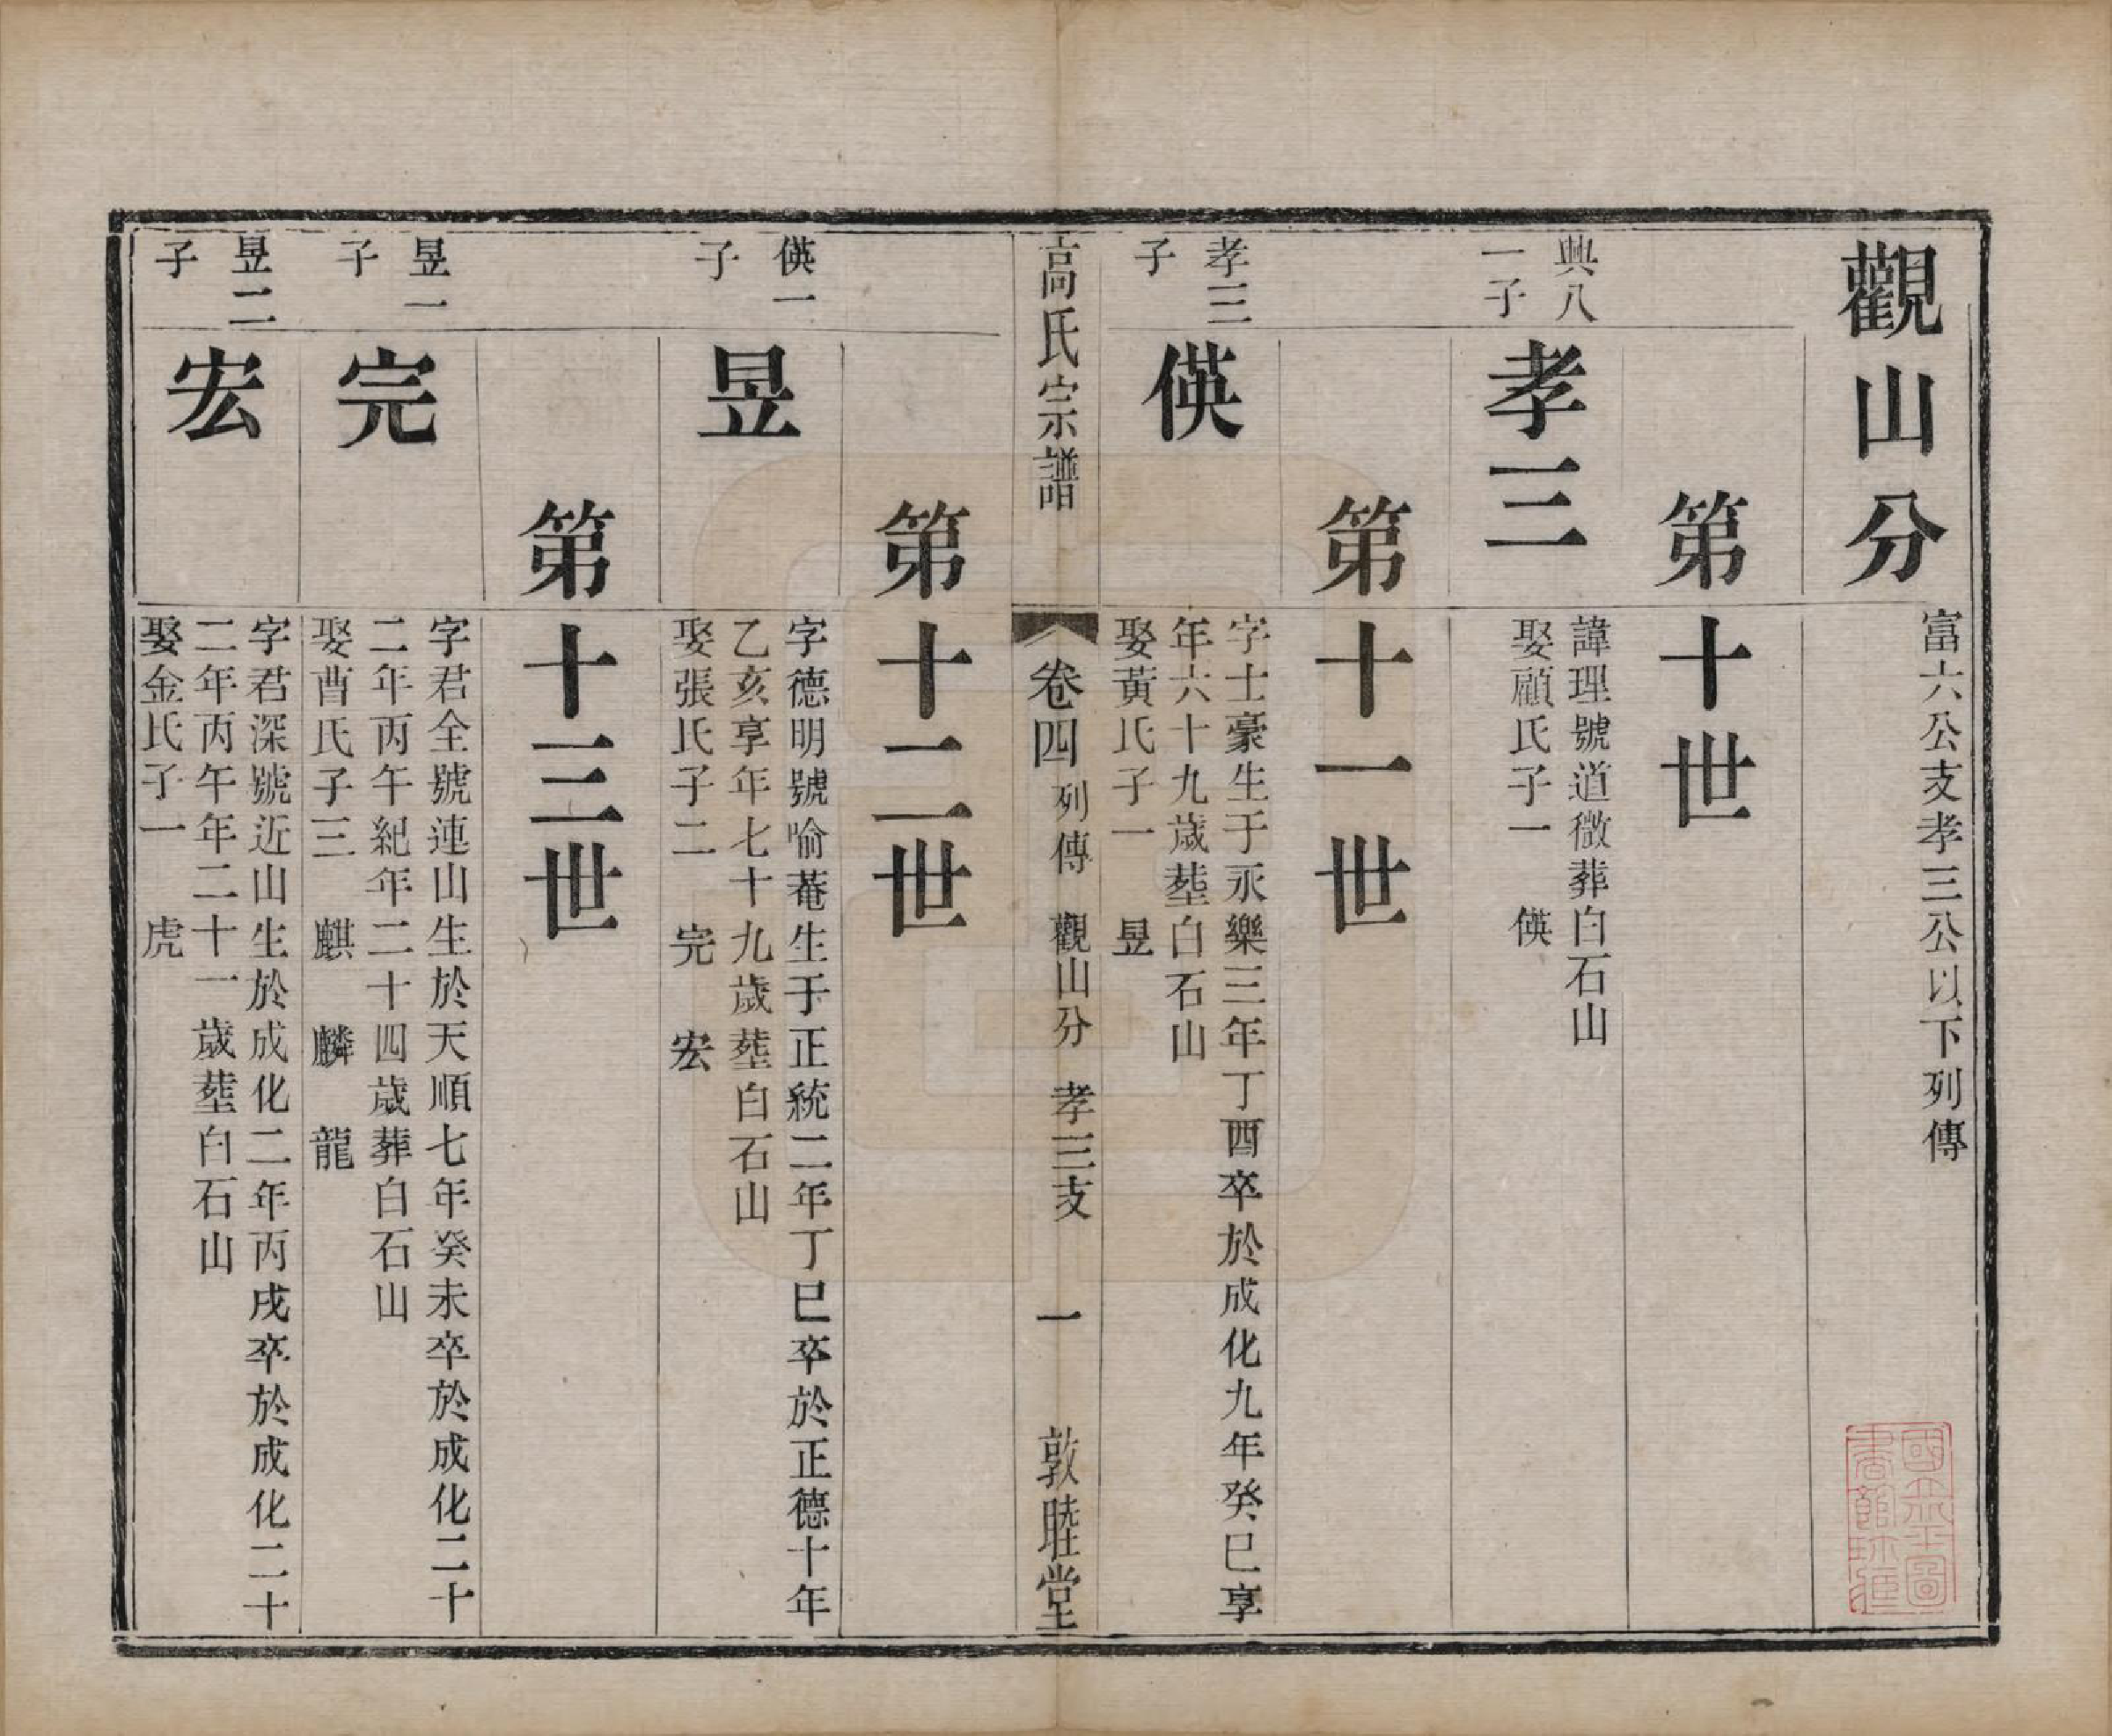 觀山分
富六公支孝三公以下列傳
第十世
興八
一子
孝三
諱理號道微葬白石山
娶顧氏子一　偀
第十一世
孝三
子
偀
字士豪生于永樂三年丁酉卒於成化九年癸巳享
年六十九歲塟白石山
娶黃氏子一　昱
高氏宗譜　卷四　列傳　觀山分　孝三支　一　敦睦堂
第十二世
偀一
子
昱
字德明號喻菴生于正統二年丁巳卒於正德十年
乙亥享年七十九歲塟白石山
娶張氏子二　完　宏
第十三世
昱一
子
完
字君全號連山生於天順七年癸未卒於成化二十
二年丙午紀年二十四歲葬白石山
娶酋氏子三　麒　麟　龍
昱二
子
宏
字君深號近山生於成化二年丙戌卒於成化二十
二年丙午年二十一歲塟白石山
娶金氏子一　虎
國立北平圖
書館珍藏